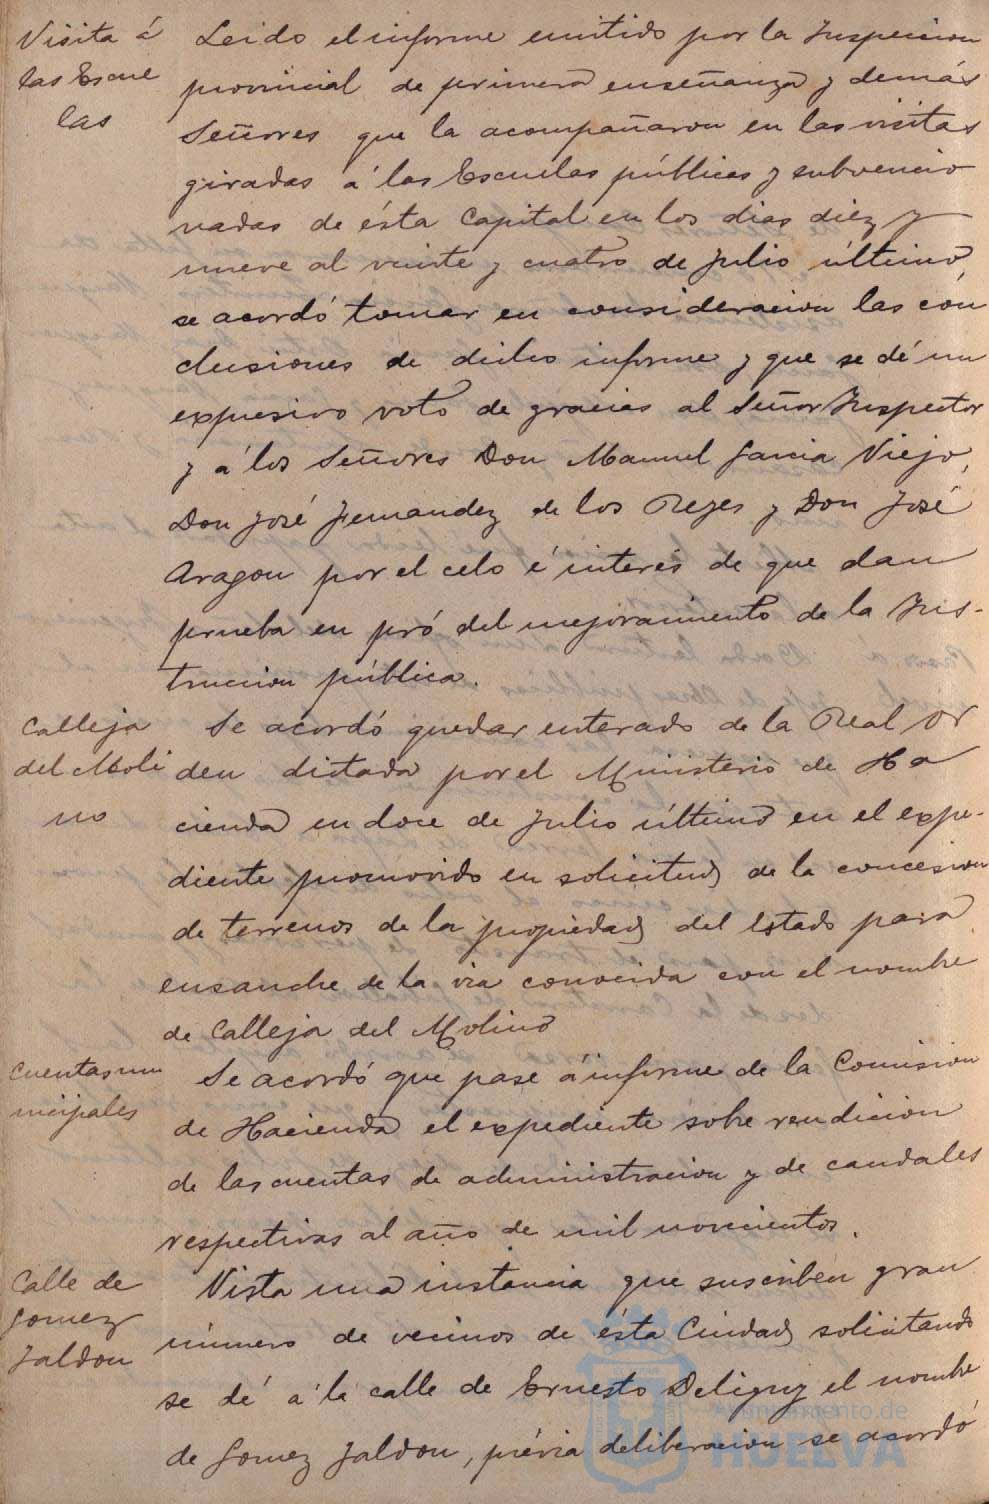 Visita á
las Escue
las
Leido el informe emitido por la Inspeccion
provincial de primera enseñanza y demás
Señores que la acompañaron en las visitas
giradas á las Escuelas públicas y subvencio
nadas de ésta Capital en los dias diez y
nueve al veinte y cuatro de Julio último,
se acordó tomar en consideracion las con
clusiones de dicho informe y que se dé un
expresivo voto de gracias al Señor Inspector
y á los Señores Don Manuel Garcia Viejo,
Don José Fernandez de los Reyes y Don José
Aragon por el celo é interés de que dan
prueba en pró del mejoramiento de la Ins-
truccion pública.
Calleja
del Moli
no
Se acordó quedar enterado de la Real Or
den dictada por el Ministerio de Ha
cienda en doce de Julio último en el expe-
diente promovido en solicitud de la concesion
de terrenos de la propiedad del Estado para
ensanche de la via conocida con el nombre
de Calleja del Molino
Cuentas mu
nicipales
Se acordó que pase á informe de la Comision
de Hacienda el expediente sobre rendicion
de las cuentas de administracion y de caudales
respectivas al año de mil novecientos.
Calle de
Gomez
Jaldon
Vista una instancia que suscriben gran
número de vecinos de ésta Ciudad solicitando
se dé á la calle de Ernesto Deligny el nombre
de Gomez Jaldon, prévia deliberacion se acordó
Ayuntamiento de
HUELVA